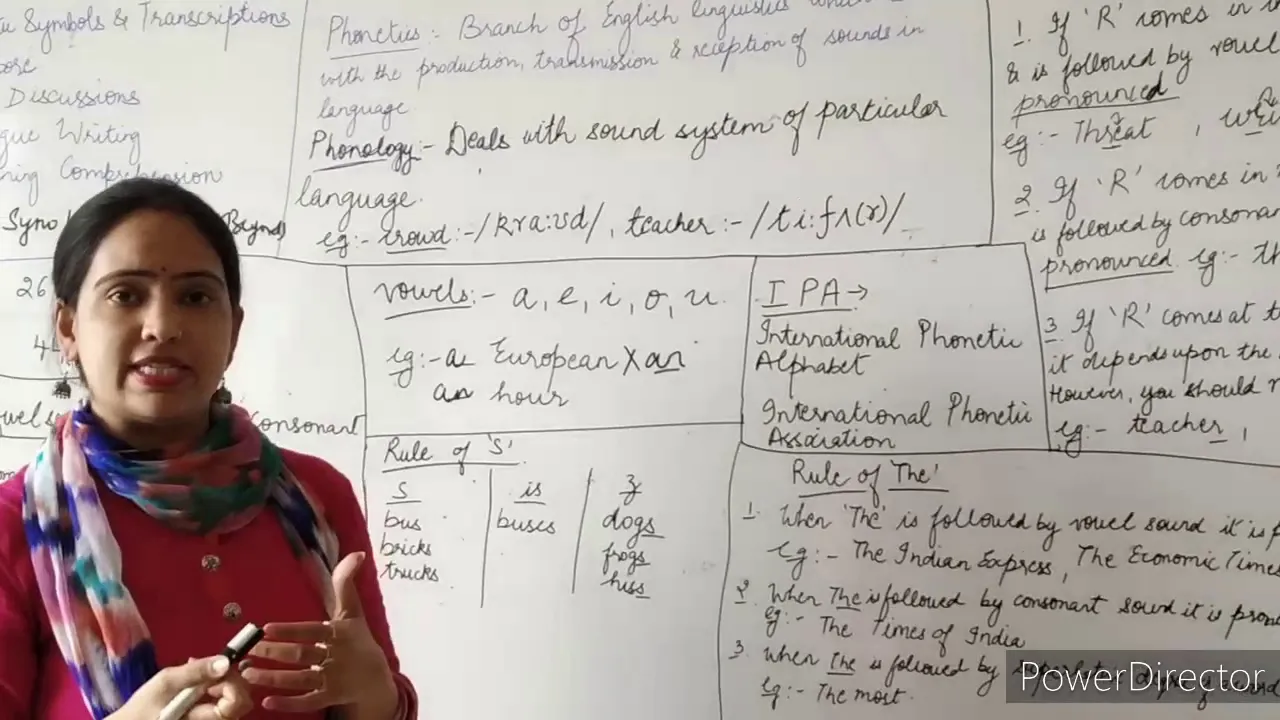 Symbols & Transcriptions
Discussions
Writing
Comprehension
26
44
Consonant
Phonetics:- Branch of English linguistics which
with the production, transmission & reception of sounds in
language
Phonology:- Deals with sound system of particular
language.
eg:- crowd:-/kra:ʊd/, teacher:-/ti:ʃʌ(r)/
vowels:- a, e, i, o, u.
eg:- a European X an
an hour
IPA→
International Phonetic
Alphabet
International Phonetic
Association
Rule of 'S'
s is z
bus buses dogs
bricks frogs
trucks hiss
1. If 'R' comes in
& is followed by vowel
pronounced
eg:- Threat,
2. If 'R' comes in
is followed by consona
pronounced eg:- th
3. If 'R' comes at t
it depends upon the
However, you should
eg:- teacher,
Rule of 'The'
1. When 'The' is followed by vowel sound it is p
eg:- The Indian Express, The Economic Times
2. When The is followed by consonant sound it is pron
eg:- The Times of India
3. When The is followed by
eg:- The most.
PowerDirector